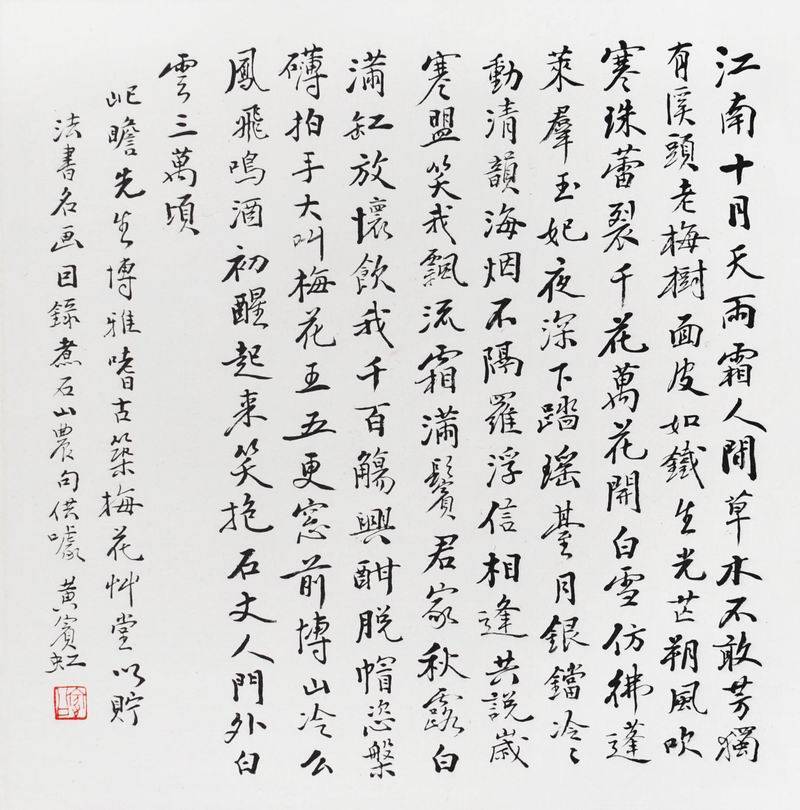 江南十月天雨霜人間草木不敢芳獨
有溪頭老梅樹面皮如鐵生光芒朔風吹
寒珠蕾裂千花萬花開白雪仿彿蓬
萊羣玉妃夜深下踏瑶臺月銀鐺冷〻
動清韻海烟不隔羅浮信相逢共說歲
寒盟笑我飄流霜滿鬢君家秋露白
滿缸放懷飲我千百觴興酣脫帽恣槃
礴拍手大叫梅花王五更窓前博山冷么
鳳飛鳴酒初醒起來笑抱石丈人門外白
雲三萬頃
屺瞻先生博雅嗜古築梅花艸堂以貯
法書名画因錄煮石山農句供噱 黃賓虹